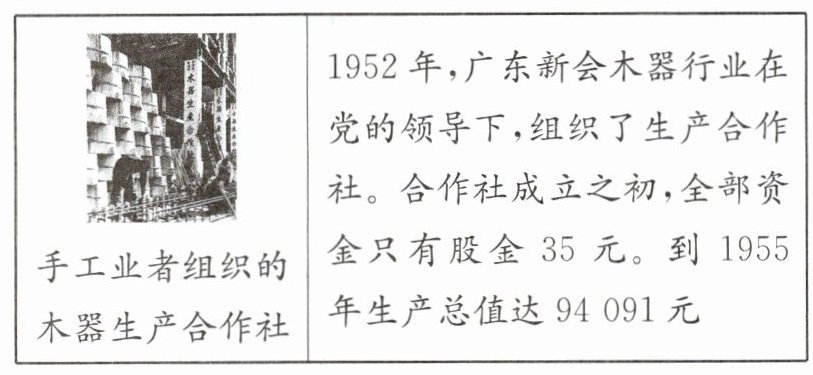 木器生产合作
手工业者组织的
木器生产合作社
1952 年,广东新会木器行业在
党的领导下,组织了生产合作
社。合作社成立之初,全部资
金只有股金 35 元。到 1955
年生产总值达 94 091 元